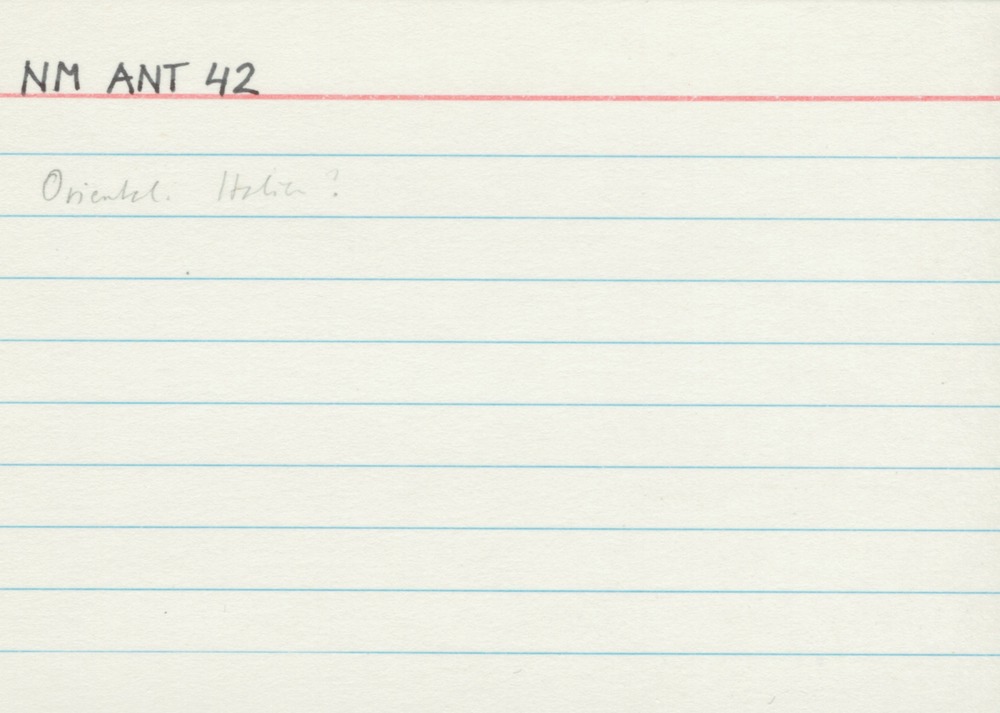 NM ANT 42
Oriental. Italien?